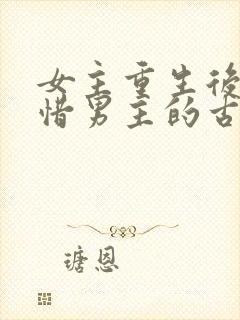 女主重生後
惜男主的古
瑭恩